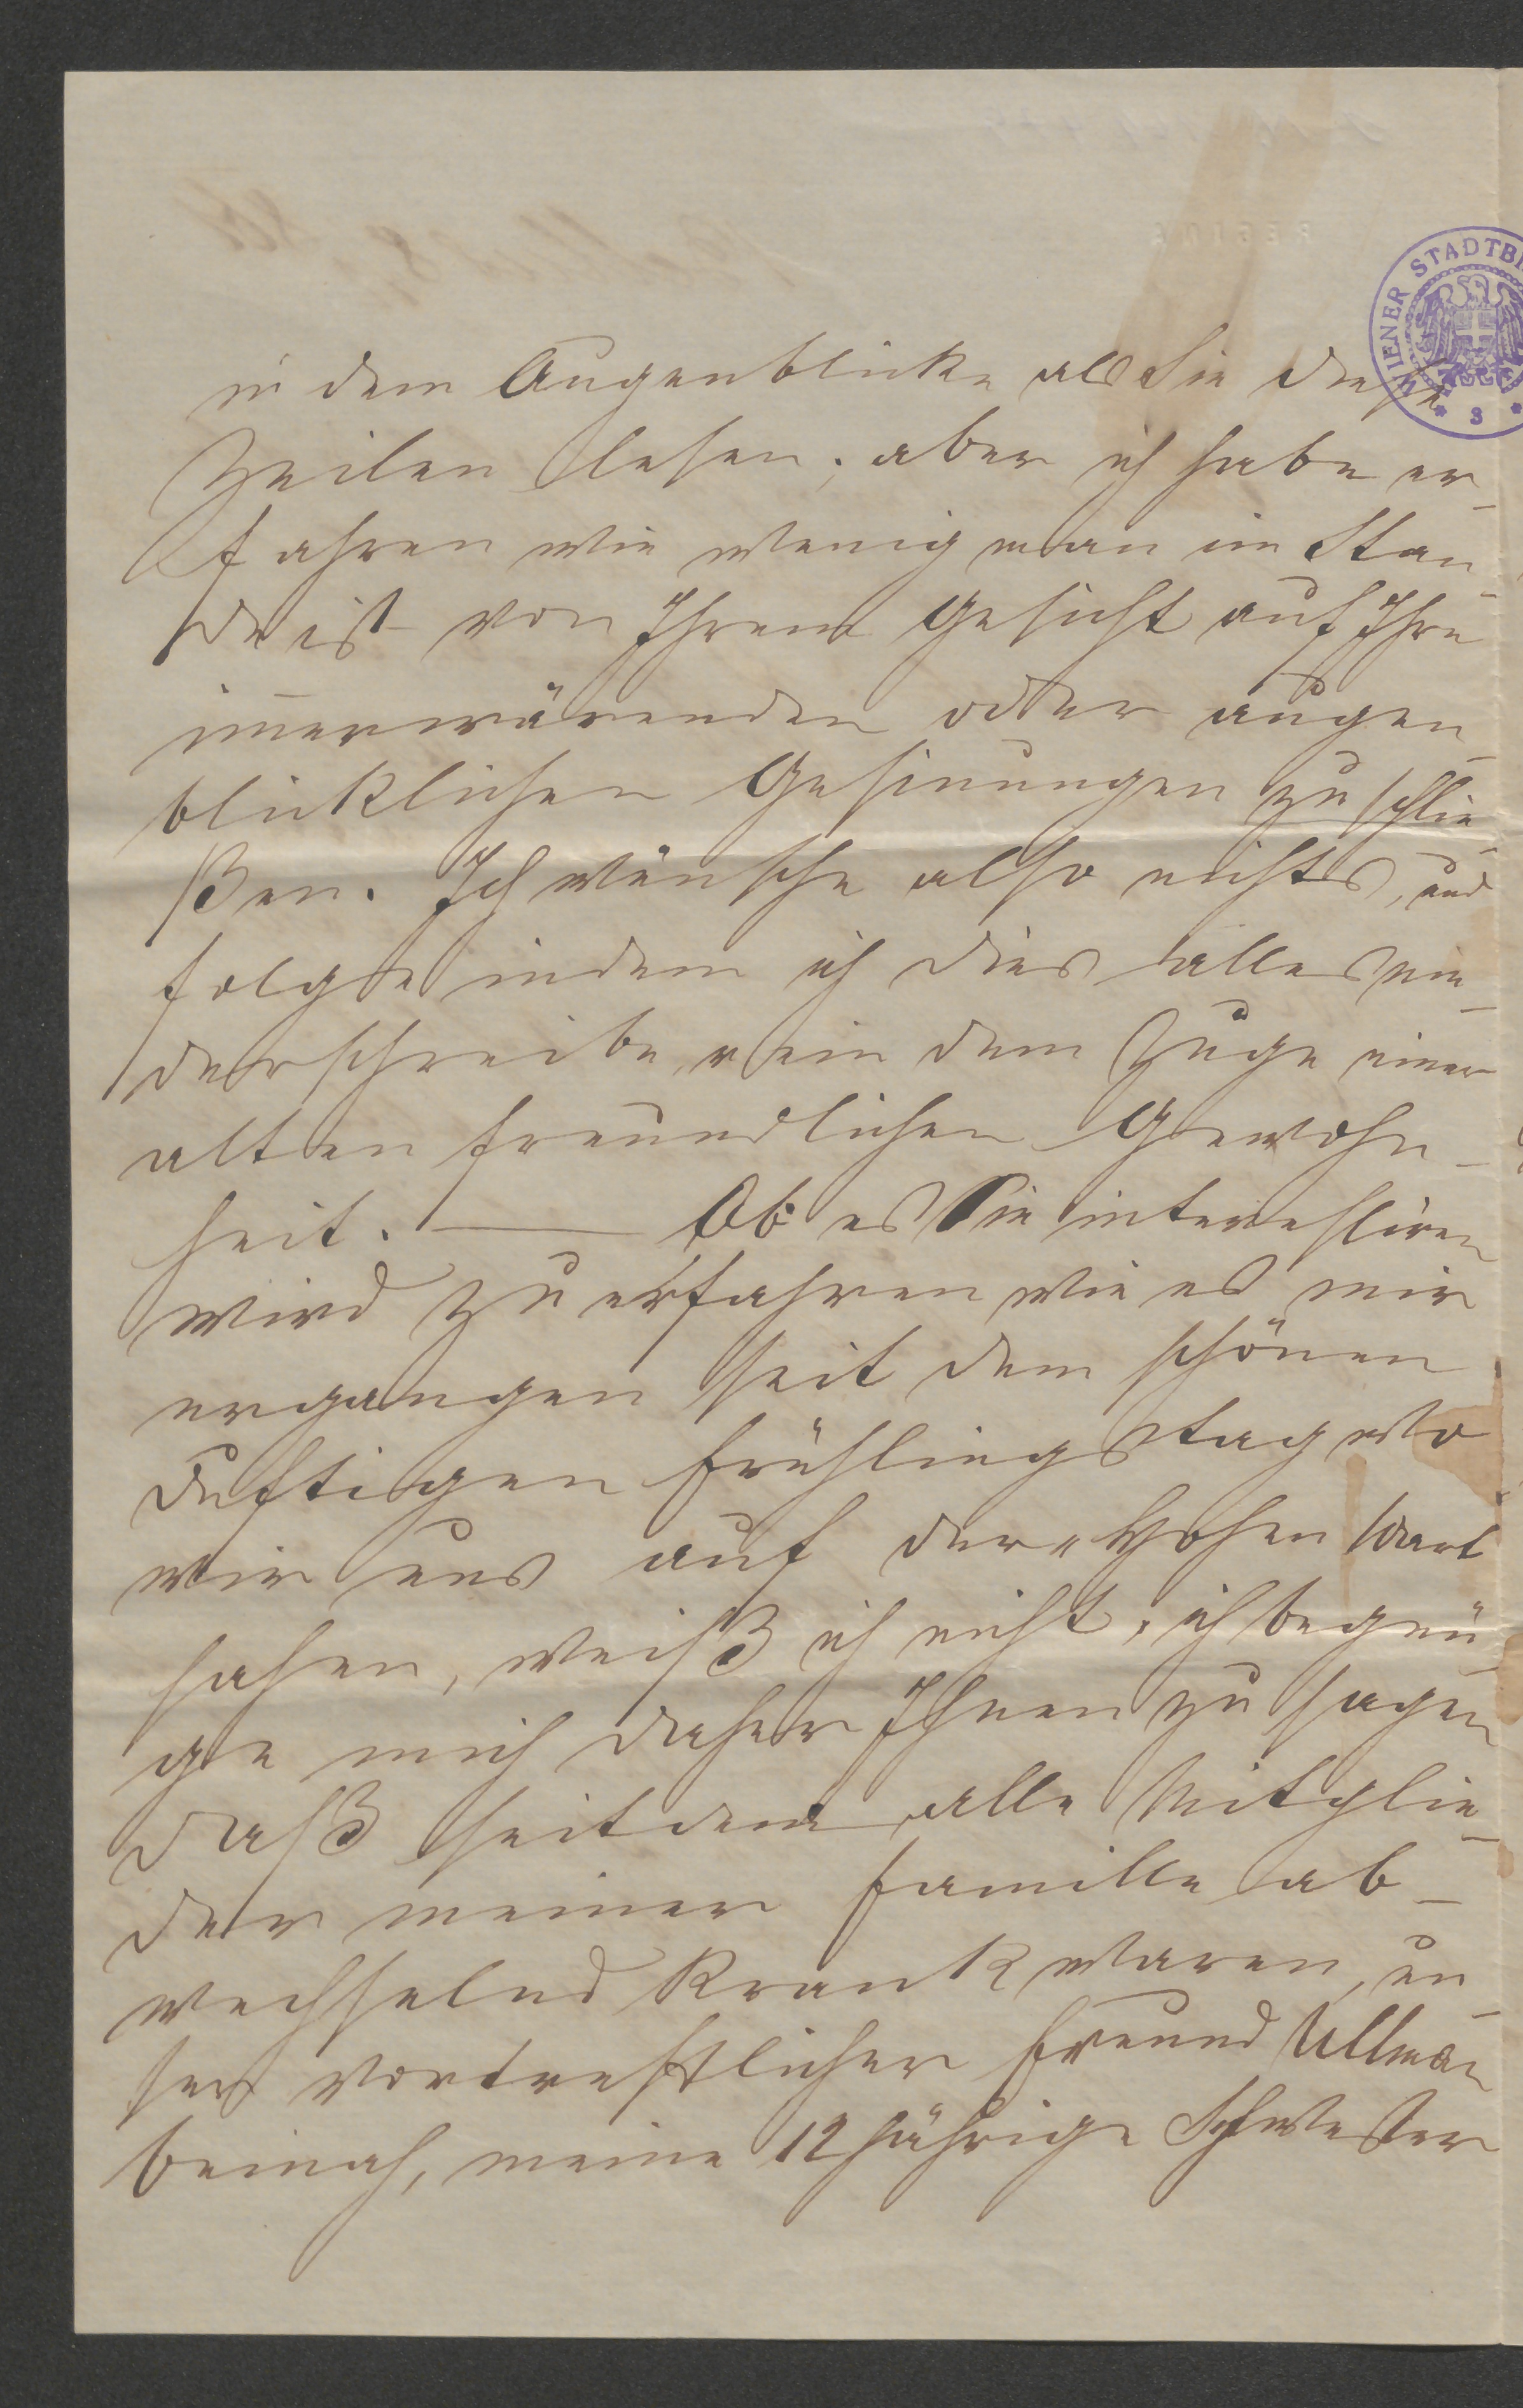 WIENER STADTBI
3
in dem Augenblicke als Sie diese
Zeilen lesen; aber ich habe er-
fahren wie wenig man im Stan-
de ist von Ihrem Gesicht auf Ihre
im̅erwärenden oder augen-
blicklichen Gesinnungen zu schlie-
ßen. Ich wünsche also nichts, und
folge indem ich dies alles nie-
derschreibe rein dem Zuge einer
alten freundlichen Gewohn-
heit. — Ob es Sie interessiren
wird zu erfahren wie es mir
ergangen seit dem schönen
duftigen Frühlingstag wo
wir uns auf der „Hohen Wart
sahen, weiß ich nicht, ich begnü-
ge mich daher Ihnen zu sagen
daß seitdem alle Mitglie-
der meiner Familie ab-
wechselnd krank waren, un-
ser vortrefflicher Freund Ullman
beinah, meine 12jährige Schwester